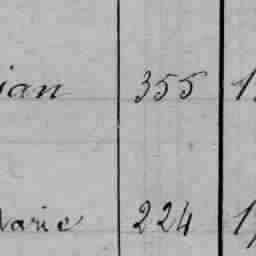 ian 355 1
Marie 224 1